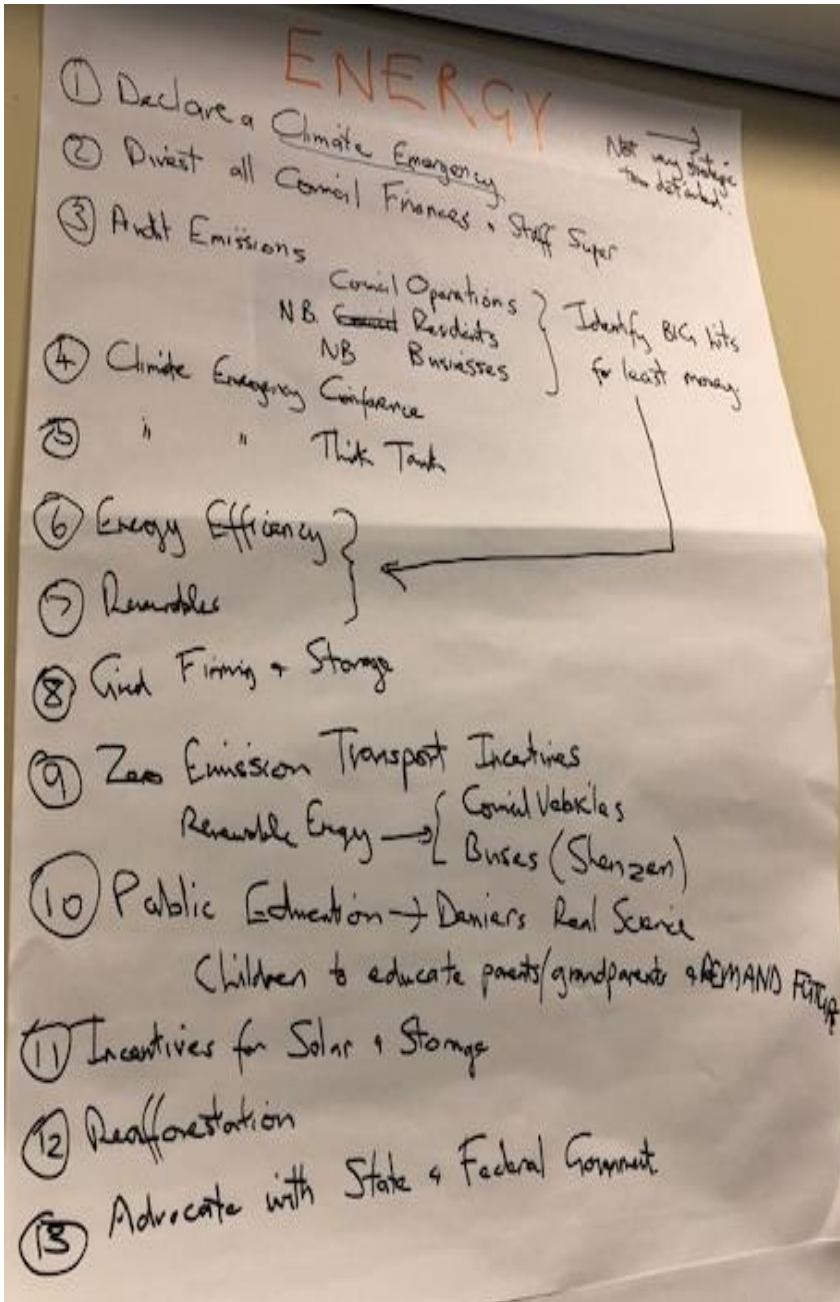 ENERGY
→
Not very strategic
too detailed.
① Declare a Climate Emergency
② Divest all Council Finances + Staff Super
③ Audit Emissions
Council Operations
NB. Residents
NB Businesses
} Identify BIG hits
for least money
④ Climate Emergency Conference
⑤ " " Think Tank
⑥ Energy Efficiency
⑦ Renewables
⑧ Grid Firming + Storage
⑨ Zero Emission Transport Incentives
Renewable Energy → Council Vehicles
Buses (Shenzen)
⑩ Public Education → Deniers Real Science
Children to educate parents/grandparents + DEMAND FUTURE
⑪ Incentives for Solar + Storage
⑫ Reafforestation
⑬ Advocate with State + Federal Government